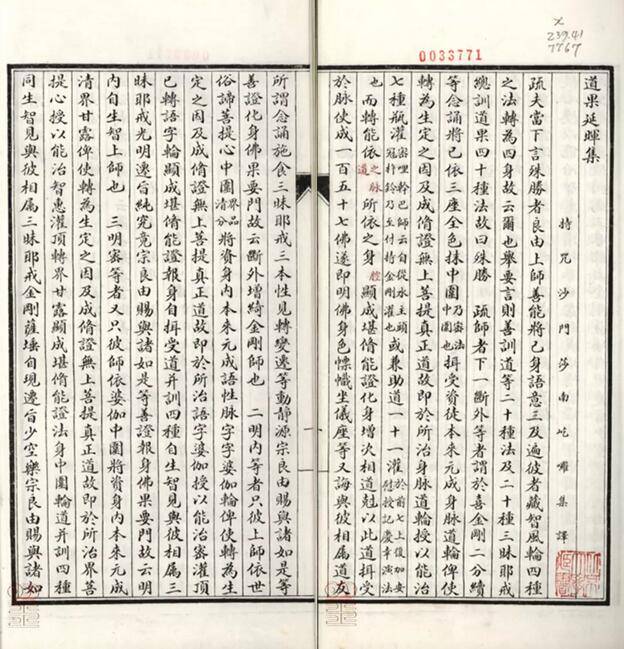 x
239.41
7767
0033771
道果延暉集
持咒沙門莎南屹囉集譯
疏夫當下言殊勝者良由上師善能將己身語意三及遍彼者藏智風輪四種
之法轉為四身故云爾也舉要言則善訓道等二十種法及二十種三昧耶戒
總訓道果四十種法故曰殊勝　疏師者下一斷外等者謂於喜金剛二分續
等念誦將已依三座全色抹中圍乃審法也揖受資徒本來元成身脉道輪俾使
轉為生定之因及成脩證無上菩提真正道故即於所治身脉道輪授以能治
七種瓶灌密哩幹巴師云自從水主頭冠杵鈴乃至付持金剛灌也或兼助道一十一灌於前七上復加安慰授記慶幸演法
也而轉能依之脉道所依之身顯成堪脩能證化身增次相道尅以此道揖受
於脉使成一百五十七佛遂即明佛身色幖幟坐儀座等又誨與彼相屬道友
所謂念誦施食三昧耶戒三本性見轉變遶等動靜源宗良由賜與諸如是等
善證化身佛果要門故云斷外增綺金剛師也　二明內等者只彼上師依世
俗諦菩提心中圍清分界品將資身內本來元成語性脉字字婆伽輪俾使轉為生
定之因及成脩證無上菩提真正道故即於所治語字婆伽授以能治密灌頂
已轉語字輪顯成堪脩能證報身自揖受道并訓四種自生智見與彼相屬三
昧耶戒光明遶旨純究竟宗良由賜與諸如是等善證報身佛果要門故云明
內自生智上師也　三明審等者又只彼師依婆伽中圍將資身內本來元成
清界甘露俾使轉為生定之因及成脩證無上菩提真正道故即於所治界菩
提心授以能治智惠灌頂轉界甘露顯成堪脩能證法身中圍輪道并訓四種
同生智見與彼相屬三昧耶戒金剛薩埵自現遶旨少空樂宗良由賜與諸如